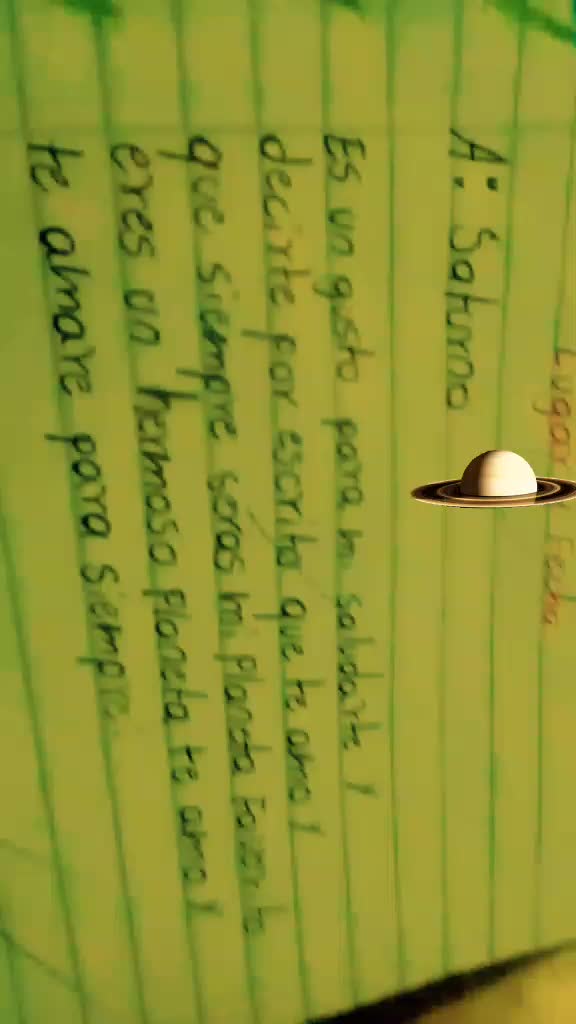 Lugar y Fecha
A: Saturno
Es un gusto para mi saludarte y
decirte por escrito que te amo y
que siempre seras mi planeta Favorito
eres un hermoso Planeta te amo y
te amare para siempre.